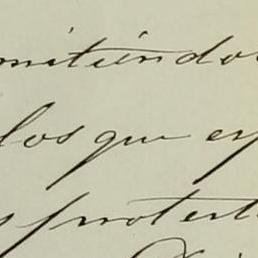 mitiéndo
los que ex
s protest